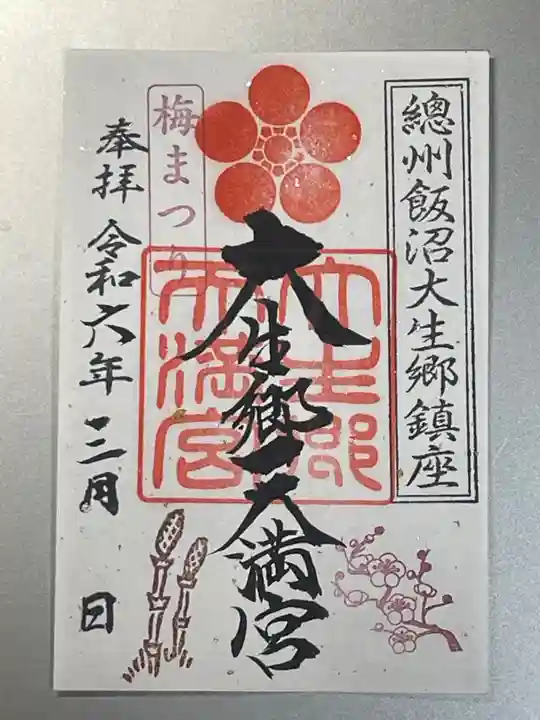 總州飯沼大生郷鎮座
大生郷天満宮
大生郷
天満宮
梅まつり
奉拝 令和六年 三月 日